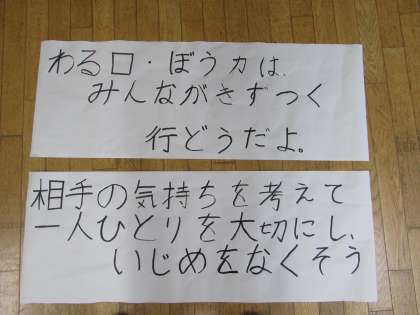 わる口・ぼう力は、
みんながきずつく
行どうだよ。
相手の気持ちを考えて
一人ひとりを大切にし、
いじめをなくそう